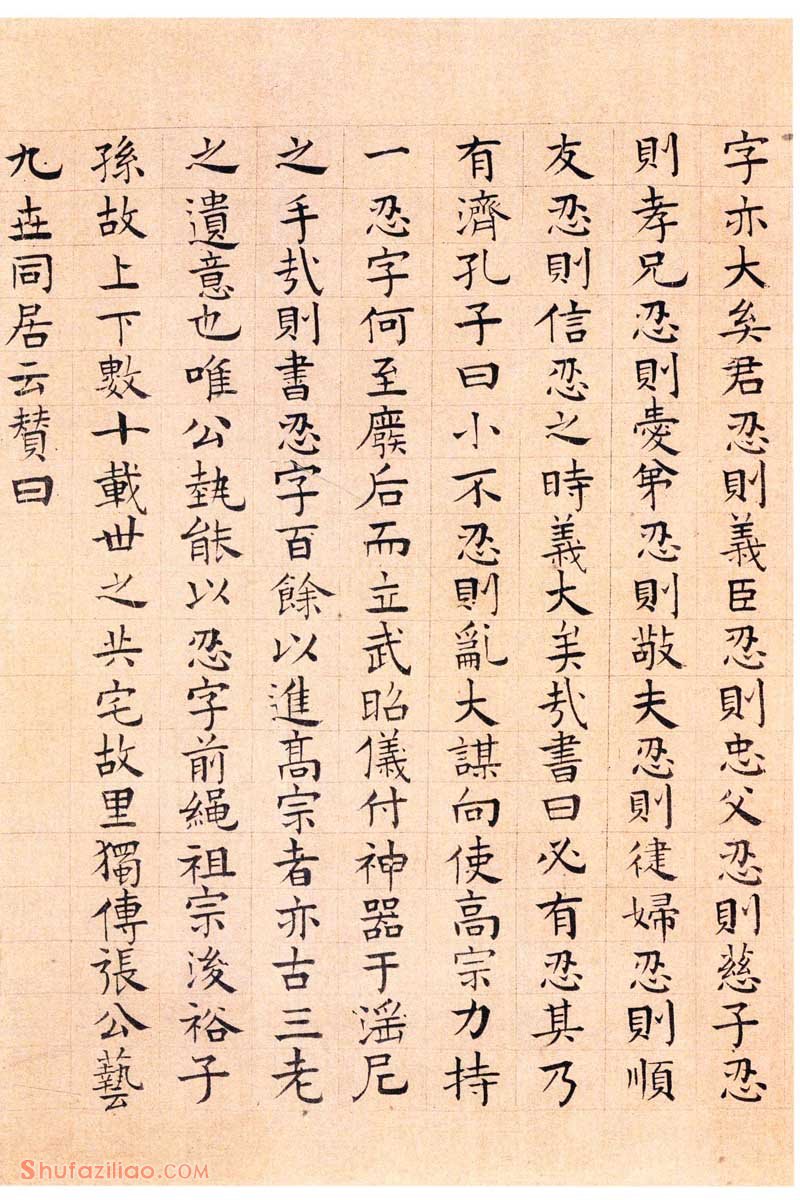 字亦大矣君忍則義臣忍則忠父忍則慈子忍
則孝兄忍則愛弟忍則敬夫忍則徤婦忍則順
友忍則信忍之時義大矣哉書曰必有忍其乃
有濟孔子曰小不忍則亂大謀向使高宗力持
一忍字何至廢后而立武昭儀付神器于滛尼
之手哉則書忍字百餘以進髙宗者亦古三老
之遺意也唯公執能以忍字前繩祖宗浚裕子
孫故上下數十載世之共宅故里獨傳張公藝
九世同居云贊曰
Shufaziliao.COM